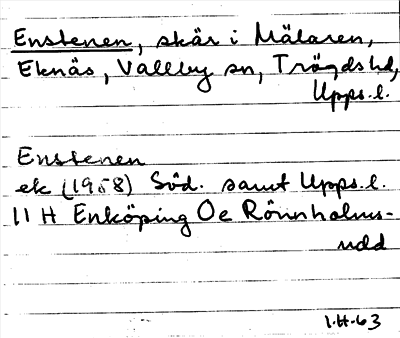 Enstenen, skär i Mälaren,
Eknäs, Vallby sn, Trögds hd,
Upps.l.
Enstenen
ek (1958) Söd. samt Upps.l.
11 H Enköping Oc Rönnholms-
udd
1.H.63